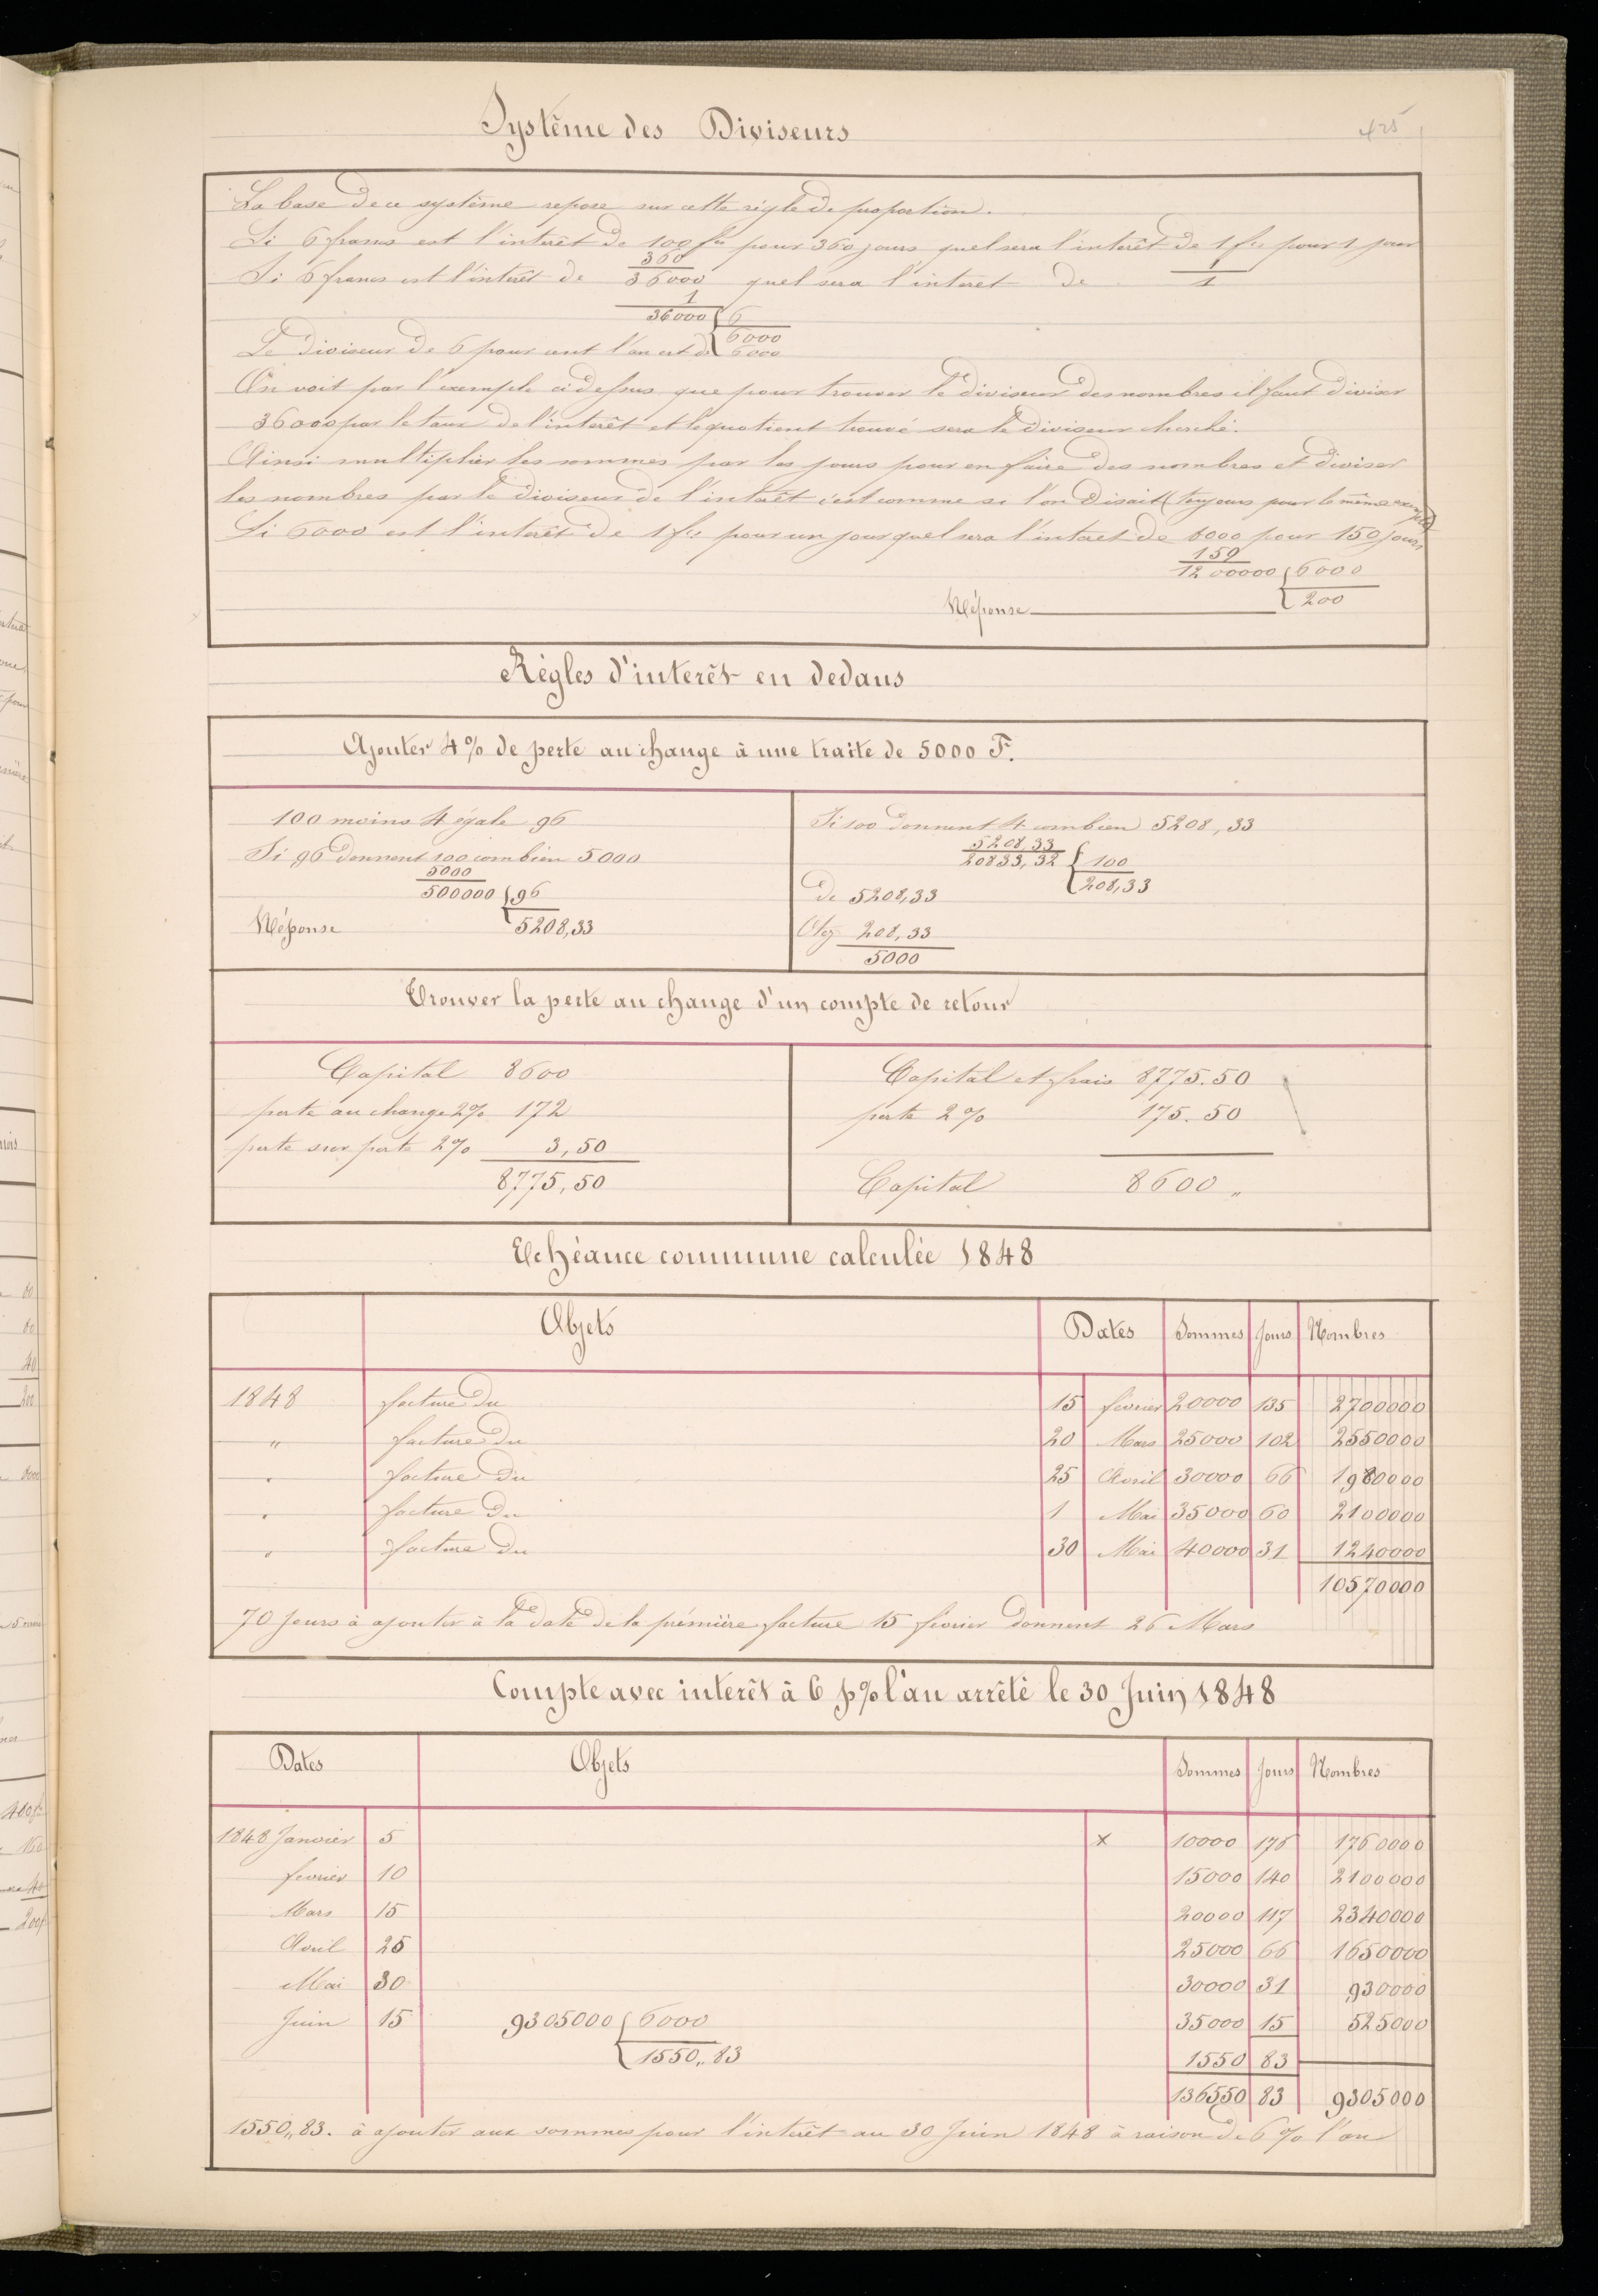 Système des Diviseurs
425
La base de ce système repose sur cette régle de proportion.
Si 6 francs est l'interêt de 100 fcs pour 360 jours quel sera l'interêt de 1 fcs pour 1 jour
360
Si 6 francs est l'intérêt de 36000 quel sera l'interet de 1
1
36000 6
6000
Le diviseur de 6 pour cent l'an est de 6000
On voit par l'exemple ci dessus que pour trouver le diviseur des nombres il faut diviser
36000 par le taux de l'interêt et le quotient trouvé sera le diviseur cherché.
Ainsi multiplier les sommes par les jours pour en faire des nombres et diviser
les nombres par le diviseur de l'interêt c'est comme si l'on disait (toujours pour le même exemple)
Si 6000 est l'interêt de 1 fcs pour un jour quel sera l'interet de 8000 pour 150 jours
150
1200000 6000
Réponse 200
Règles d'interêt en dedans
Ajouter 4% de perte au change à une traite de 5000 F.
100 moins 4 égale 96
Si 96 donnent 100 combien 5000
5000
500000 96
Réponse 5208,33
Si 100 donnent 4 combien 5208,33
5208,33
20833,32 100
208,33
De 5208,33
Otez 208,33
5000
Trouver la perte au change d'un compte de retour
Capital 8600
perte au change 2% 172
perte sur perte 2% 3,50
8775,50
Capital et frais 8775.50
perte 2% 175.50
Capital 8600 "
Echéance commune calculée 1848
Objets Dates Sommes Jours Nombres
1848 facture du 15 février 20000 135 2700000
" facture du 20 Mars 25000 102 2550000
" facture du 25 Avril 30000 66 1980000
" facture du 1 Mai 35000 60 2100000
" facture du 30 Mai 40000 31 1240000
10570000
70 Jours à ajouter à la date de la prémière facture 15 février donnent 26 Mars
Compte avec interêt à 6 p% l'an arrêté le 30 Juin 1848
Dates Objets Sommes Jours Nombres
1848 Janvier 5 x 10000 176 1760000
fevrier 10 15000 140 2100000
Mars 15 20000 117 2340000
Avril 25 25000 66 1650000
Mai 30 30000 31 930000
Juin 15 9305000 6000 35000 15 525000
1550,,83 1550 83
136550 83 9305000
1550,,83. à ajouter aux sommes pour l'interêt au 30 Juin 1848 à raison de 6% l'an